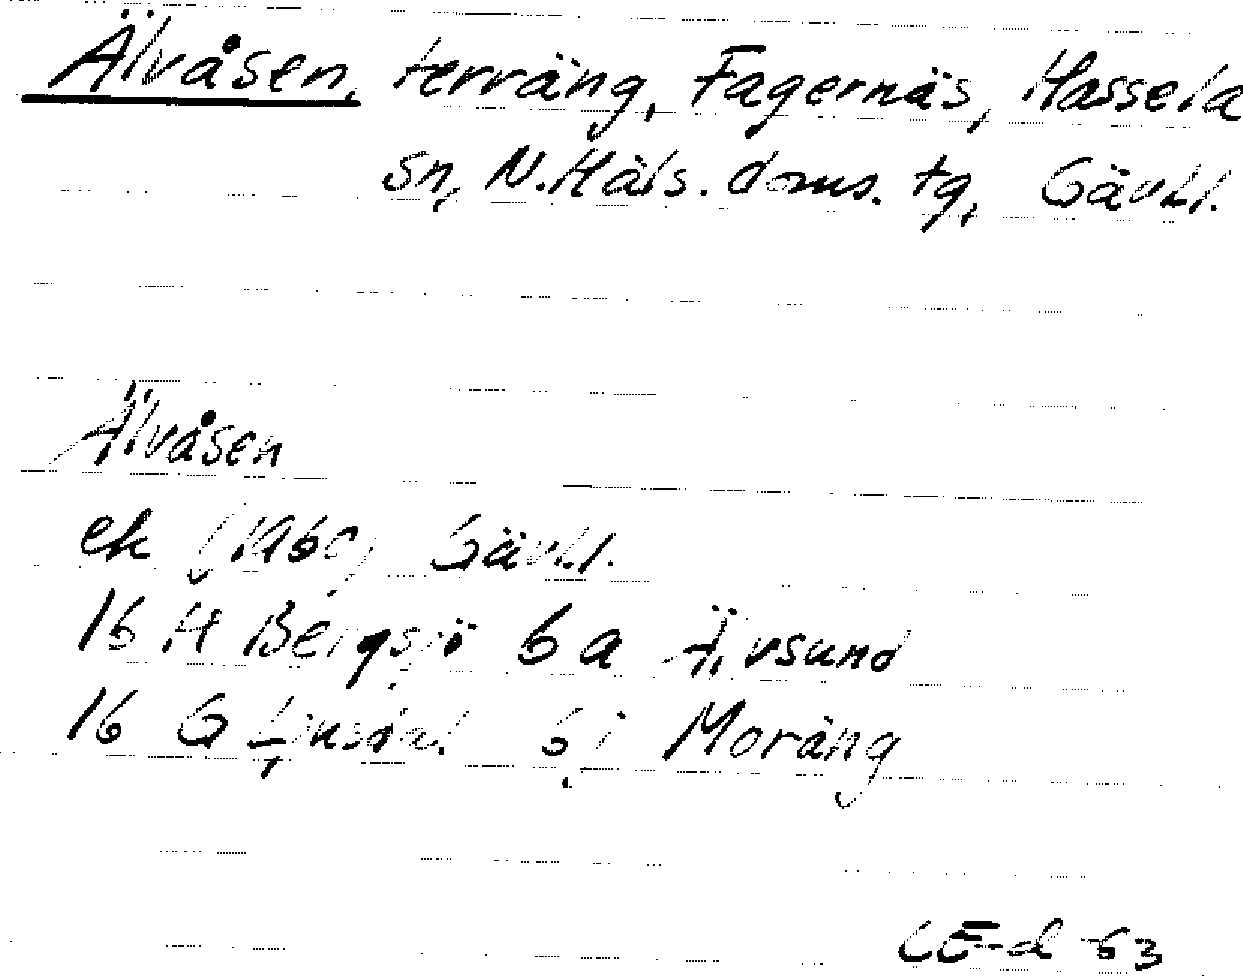 Älvåsen, terräng, Fagernäs, Hassela
sn, N.Häls. doms. tg, Gävl.l.
Älvåsen
ek (1960) Gävl.l.
16 H Bergsjö 6 a Älvsund
16 G Ljusdal 6 j Moräng
CE-d -63